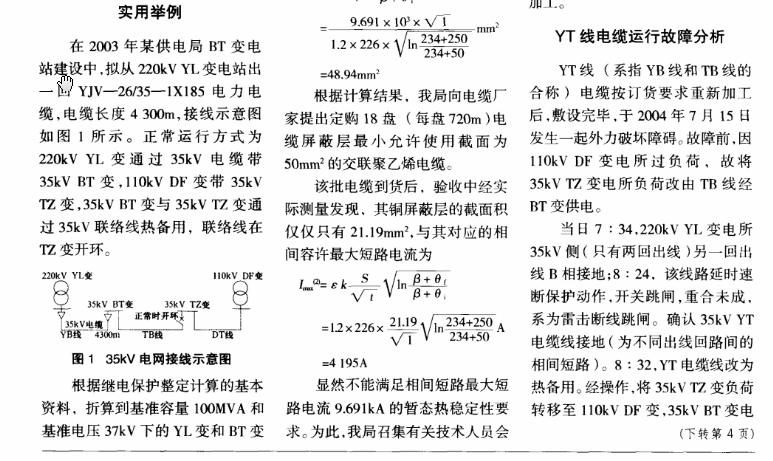 实用举例
在 2003 年某供电局 BT 变电
站建设中,拟从 220kV YL 变电站出
一回 YJV—26/35—1X185 电力电
缆,电缆长度 4 300m,接线示意图
如图 1 所示。正常运行方式为
220kV YL 变通过 35kV 电缆带
35kV BT 变,110kV DF 变带 35kV
TZ 变,35kV BT 变与 35kV TZ 变通
过 35kV 联络线热备用，联络线在
TZ 变开环。
220kV YL变
110kV DF变
35kV BT变
35kV TZ变
正常时开环
35kV电缆
YB线
4300m
TB线
DT线
图 1 35kV 电网接线示意图
根据继电保护整定计算的基本
资料，折算到基准容量 100MVA 和
基准电压 37kV 下的 YL 变和 BT 变
= 9.691 × 10³ × √1 / (1.2 × 226 × √(ln (234+250)/(234+50))) mm²
=48.94mm²
根据计算结果，我局向电缆厂
家提出定购 18 盘（每盘 720m）电
缆屏蔽层最小允许使用截面为
50mm² 的交联聚乙烯电缆。
该批电缆到货后，验收中经实
际测量发现，其铜屏蔽层的截面积
仅仅只有 21.19mm²,与其对应的相
间容许最大短路电流为
Imax⁽²⁾= ε k S/√t √(ln (β + θf)/(β + θi))
=1.2×226× 21.19/√1 √(ln (234+250)/(234+50)) A
=4 195A
显然不能满足相间短路最大短
路电流 9.691kA 的暂态热稳定性要
求。为此,我局召集有关技术人员会
加工。
YT 线电缆运行故障分析
YT 线（系指 YB 线和 TB 线的
合称）电缆按订货要求重新加工
后,敷设完毕,于 2004 年 7 月 15 日
发生一起外力破坏障碍。故障前,因
110kV DF 变电所过负荷，故将
35kV TZ 变电所负荷改由 TB 线经
BT 变供电。
当日 7：34,220kV YL 变电所
35kV 侧（只有两回出线）另一回出
线 B 相接地;8：24，该线路延时速
断保护动作,开关跳闸,重合未成,
系为雷击断线跳闸。确认 35kV YT
电缆线接地（为不同出线回路间的
相间短路）。8：32,YT 电缆线改为
热备用。经操作,将 35kV TZ 变负荷
转移至 110kV DF 变,35kV BT 变电
(下转第 4 页)